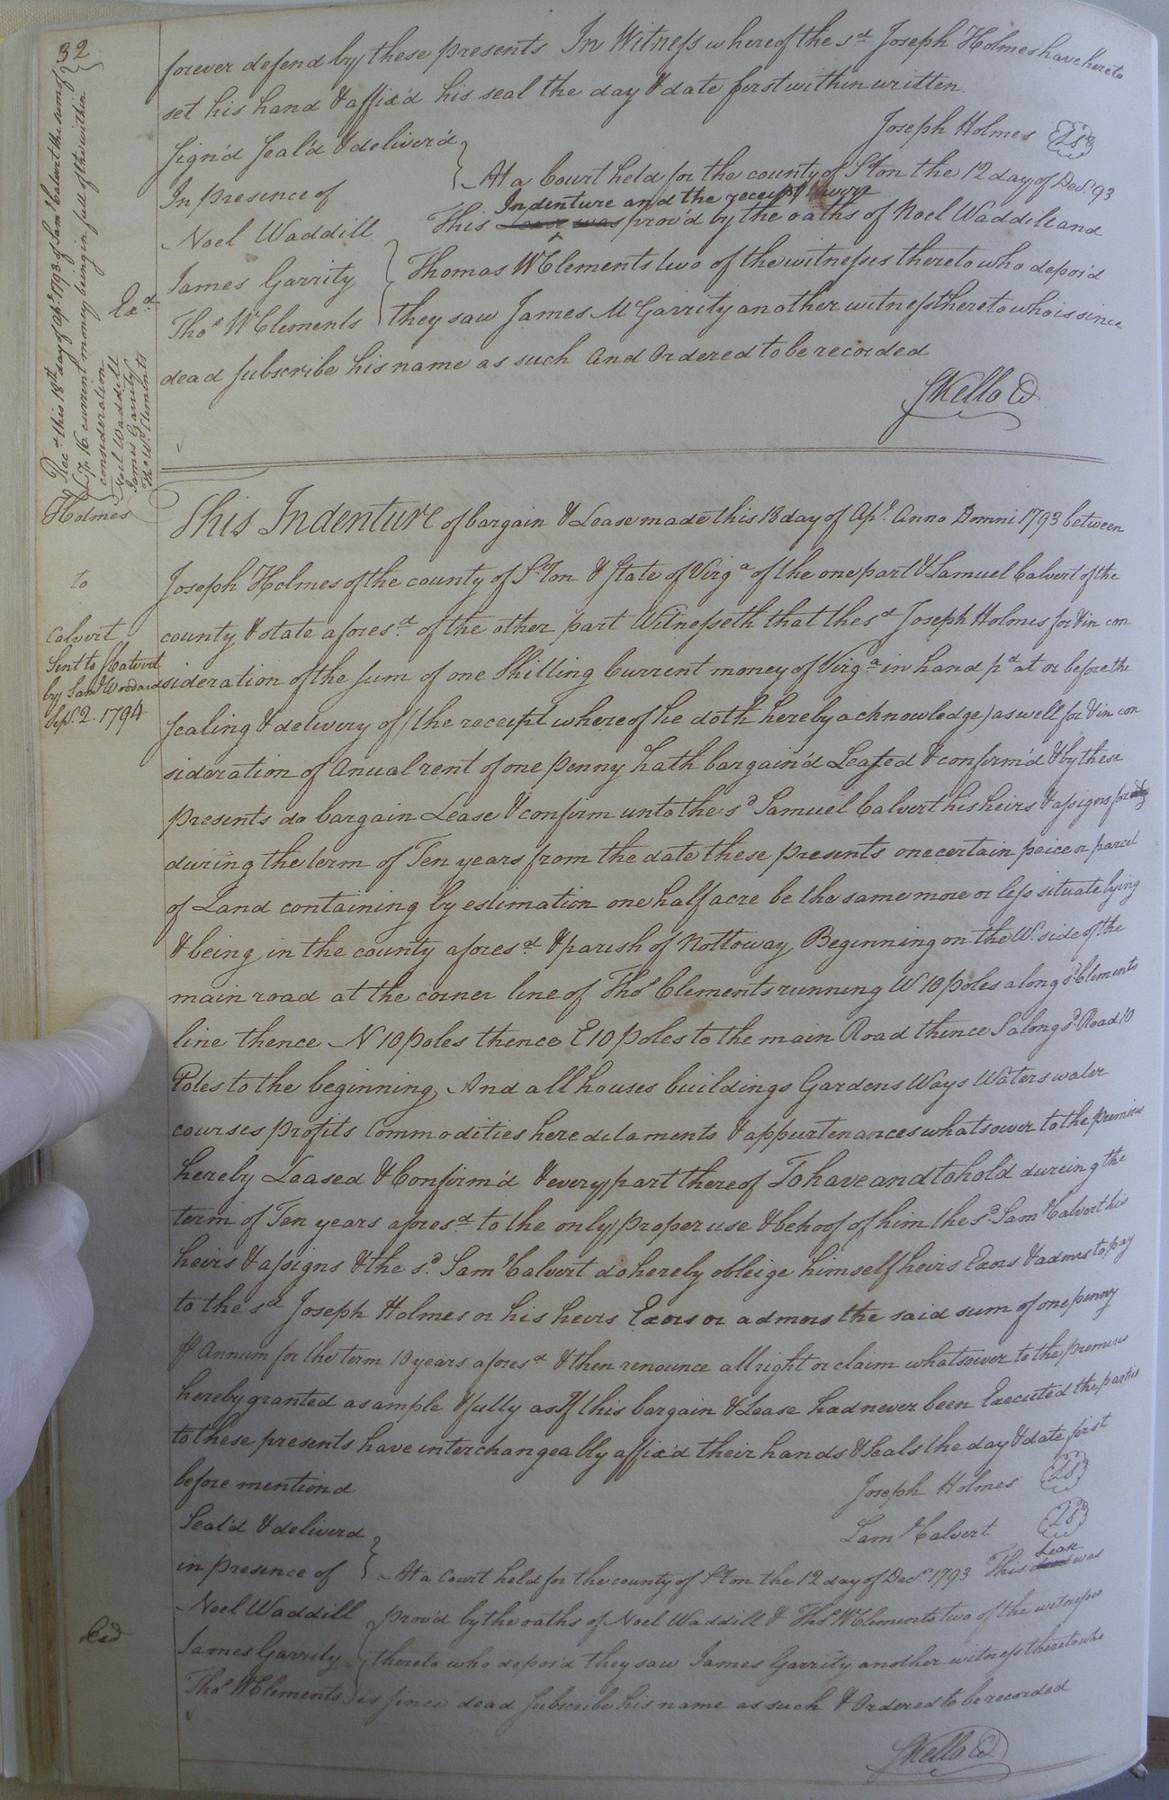 32
forever defend by these presents In Witness whereof the sd Joseph Holmes have hereto
set his hand & affix'd his seal the day & date first within written.
Joseph Holmes LS
Sign'd Seal'd & deliver'd
In presence of
Noel Waddill
James Garrity
Thos W Clements
Exd
At a Court held for the county of S'ton the 12 day of Decr 93
Indenture and the receipt
This was prov'd by the oaths of Noel Waddile and
Thomas W Clements two of the witnesses thereto who depos'd
they saw James McGarrity another witness thereto who is since
dead Subscribe his name as such And Ordered to be recorded
SKello Ck
Recd this 18th day of Apl 1793 of Saml Calvert the sum of
current money being in full of the within
consideration
Noel Waddill
James Garrity
Thos W Clements
Holmes
to
Calvert
Sent to S Calvert
by Saml Woodard
Sept 2. 1794
This Indenture of bargain & Lease made this 18 day of Apl Anno Domni 1793 between
Joseph Holmes of the county of S'ton & State of Virga of the one part & Samuel Calvert of the
county & state aforesd of the other part Witnesseth that the sd Joseph Holmes for & in con
sideration of the sum of one Shilling Current money of Virga in hand pd at or before the
sealing & delivery of (the receipt whereof he doth hereby acknowledge) as well for & in con
sideration of Anual rent of one penny hath bargain'd Leased & confirm'd & by these
presents do bargain Lease & confirm unto the sd Samuel Calvert his heirs & assigns for
during the term of Ten years from the date these presents one certain peice or parcel
of Land containing by estimation one half acre be the same more or less situate lying
& being in the county aforesd & parish of Nottoway Beginning on the W. side of the
main road at the corner line of Thos Clements running W 10 poles along sd Clements
line thence N 10 poles thence E 10 poles to the main Road thence S along sd Road 10
Poles to the beginning, And all houses buildings Gardens Ways Waters water
courses profits Commodities heredilaments & appurtenances whatsower to the premises
hereby Leased & Confirm'd & every part thereof To have and to hold dureing the
term of Ten years aforesd to the only proper use & behoof of him the sd Saml Calvert his
heirs & assigns & the sd Saml Calvert do hereby obleige himself heirs Exors & admrs to pay
to the sd Joseph Holmes or his heirs Exors or admors the said sum of one penny
Annum for the term 10 years aforesd & then renounce all right or claim whatsower to the premises
hereby granted as ample & fully as If this bargain & Lease had never been Executed the parties
to these presents have interchangeably affix'd their hands & Seals the day & date first
before mention'd
Joseph Holmes LS
Saml Calvert LS
Seal'd & deliverd
in presence of
Noel Waddill
James Garrity
Thos W Clements
Exd
Lease
At a Court held for the county of S'ton the 12 day of Decr 1793 This was
prov'd by the oaths of Noel Waddill & Thos W Clements two of the witnesses
thereto who depos'd they saw James Garrity another witness thereto who
is since dead Subscribe his name as such & Ordered to be recorded
SKello Ck